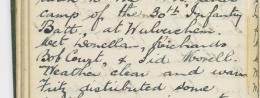 camp of the 30th Infantry
Batt, at Wulverchem.
Meet Donellan, Richards
Bob Court, & Sid Morell.
Weather clear and warm
Fritz distributed some